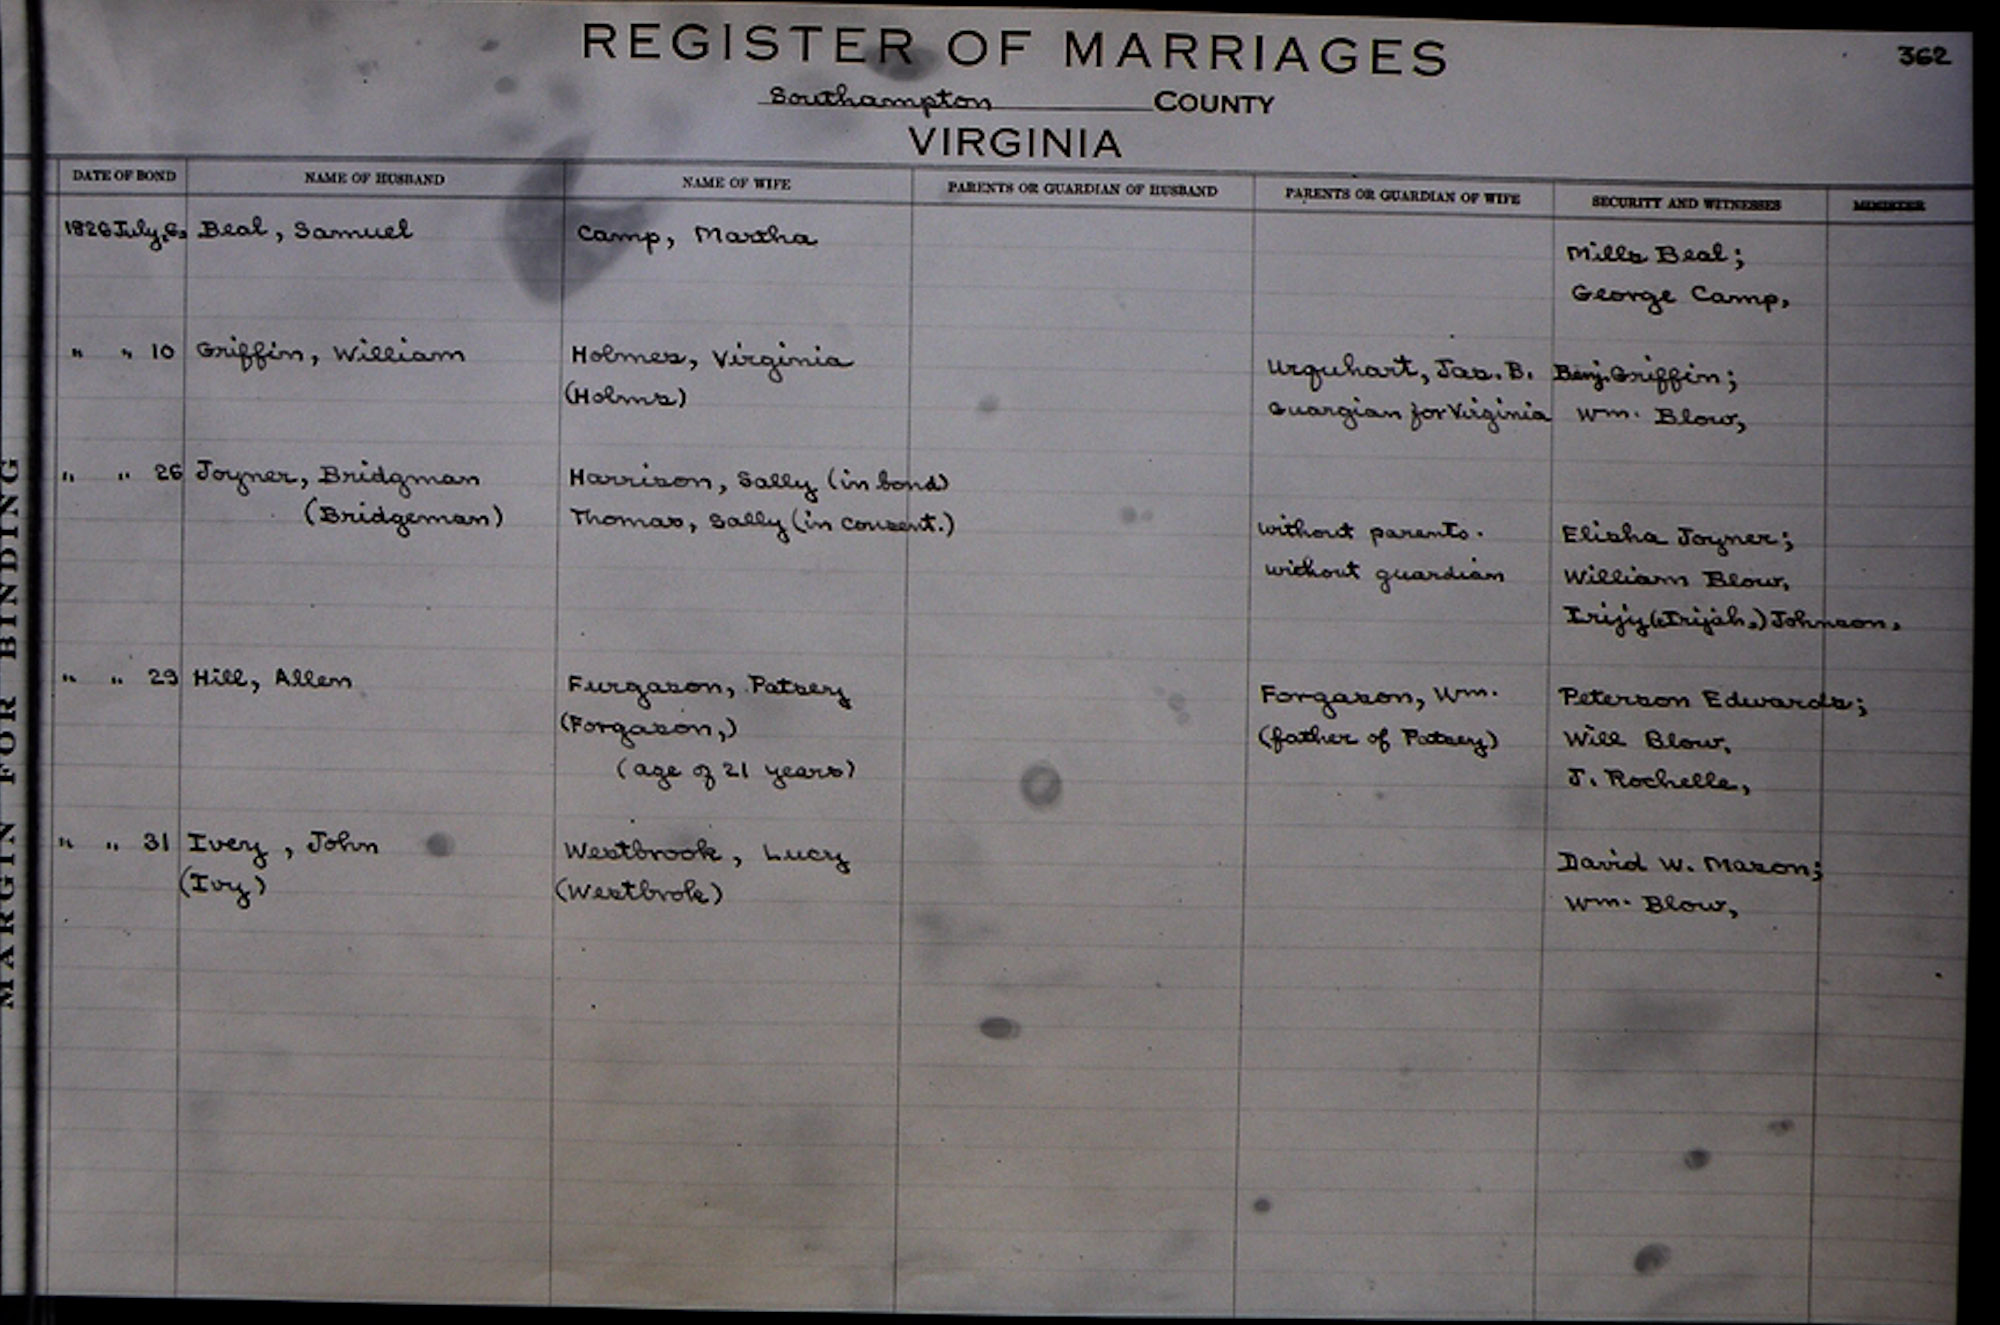 REGISTER OF MARRIAGES
362
Southampton COUNTY
VIRGINIA
DATE OF BOND NAME OF HUSBAND NAME OF WIFE PARENTS OR GUARDIAN OF HUSBAND PARENTS OR GUARDIAN OF WIFE SECURITY AND WITNESSES MINISTER
1826 July, 6, Beal, Samuel Camp, Martha
Mills Beal;
George Camp,
" " 10 Griffin, William Holmes, Virginia Urquhart, Jas. B. Benj. Griffin;
(Holms) Guargian for Virginia Wm. Blow,
" " 26 Joyner, Bridgman Harrison, Sally (in bond)
(Bridgeman) Thomas, Sally (in consent.)
without parents. Elisha Joyner;
without guardian William Blow,
Johnson,
" " 29 Hill, Allen Furgason, Patsey Forgason, Wm. Peterson Edwards;
(Forgason,) (father of Patsey) Will Blow,
(age of 21 years) J. Rochelle,
" " 31 Ivery, John Westbrook, Lucy David W. Mason;
(Ivy) (Westbrok) Wm. Blow,
MARGIN FOR BINDING